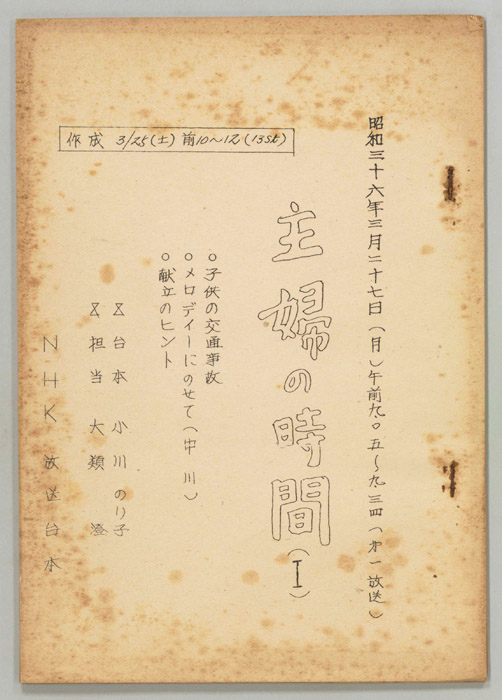 昭和三十六年三月二十七日(月)午前九.〇五~九.三四(第一放送)
作成 3/25(土)前10~12(13St)
主婦の時間(I)
○子供の交通事故
○メロデイーにのせて(中川)
○献立のヒント
台本 小川のり子
担当 大類 澄
NHK放送台本